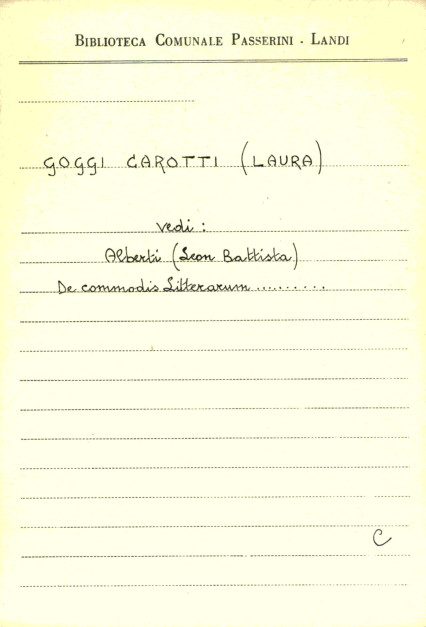 BIBLIOTECA COMUNALE PASSERINI - LANDI
GOGGI CAROTTI (LAURA)
vedi :
Alberti (Leon Battista)
De commodis Litterarum ..........
C